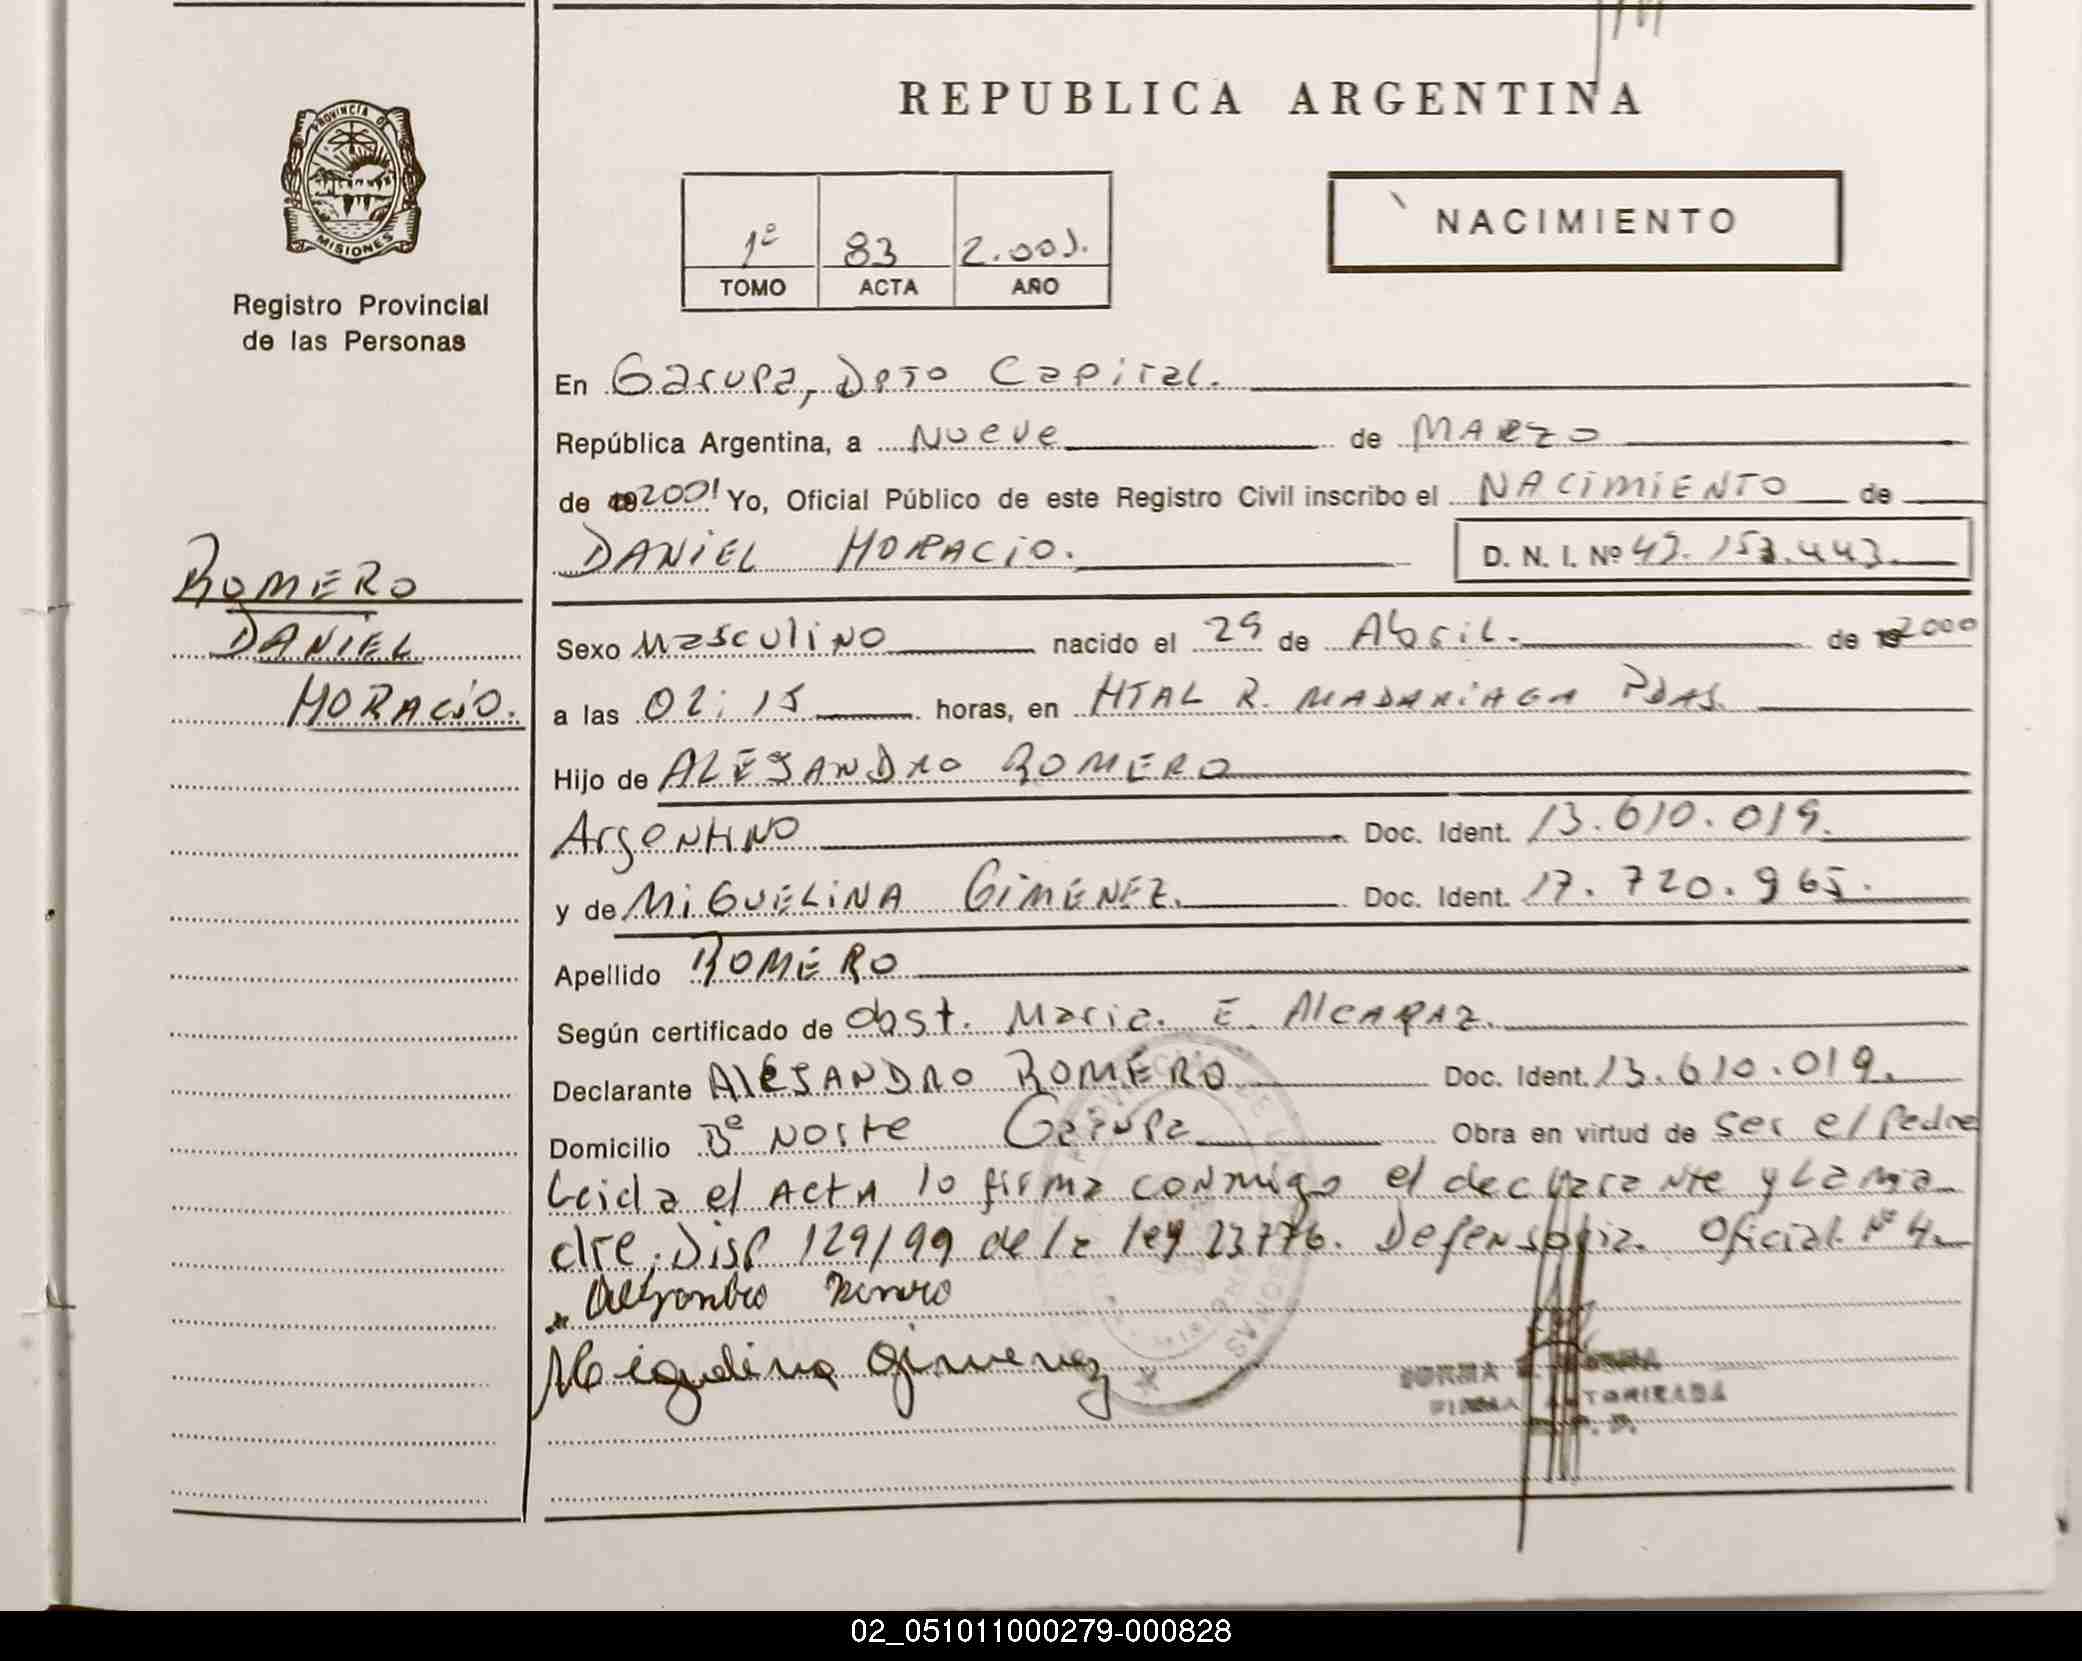 REPUBLICA ARGENTINA
PROVINCIA DE
MISIONES
Registro Provincial
de las Personas
1º 83 2.001.
TOMO ACTA AÑO
NACIMIENTO
En Garupa, Dpto Capital.
República Argentina, a Nueve de MARZO
de 19 2001 Yo, Oficial Público de este Registro Civil inscribo el NACIMIENTO de
DANIEL HORACIO. D. N. I. Nº
ROMERO
DANIEL
HORACIO.
Sexo Masculino nacido el 29 de Abril. de 19 2000
a las 02:15 horas, en HTAL R. MADARIAGA PDAS.
Hijo de ALEJANDRO ROMERO
Argentino Doc. Ident. 13.610.019.
y de MIGUELINA GIMENEZ. Doc. Ident. 17.720.965.
Apellido ROMERO
Según certificado de obst. Maria. E. Alcaraz.
Declarante AleJANDRO ROMERO Doc. Ident. 13.610.019.
Domicilio Bº Norte Garupa Obra en virtud de ser el padre
Leida el ActA lo firma conmigo el declarante y la ma-
dre. Disp 129/99 de la ley 23776. Defensoria Oficial Nº 4.
Alejandro Romero
Miguelina Gimenez
NORMA
FIRMA AUTORIZADA
02_051011000279-000828